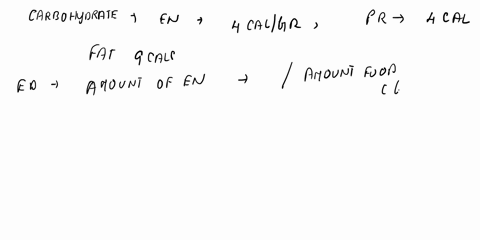 CARBOHYDRATE → EN → 4 CAL/GR, PR → 4 CAL
FAT 9 CALS
ED → AMOUNT OF EN → / AMOUNT FOOD